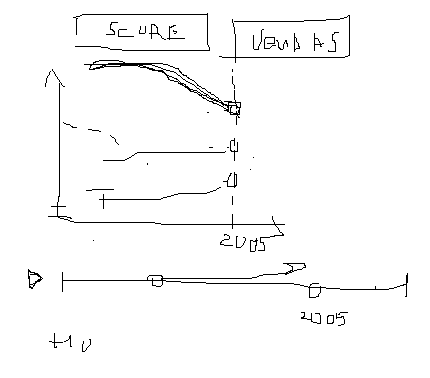 SCURE
VENDAS
2005
2005